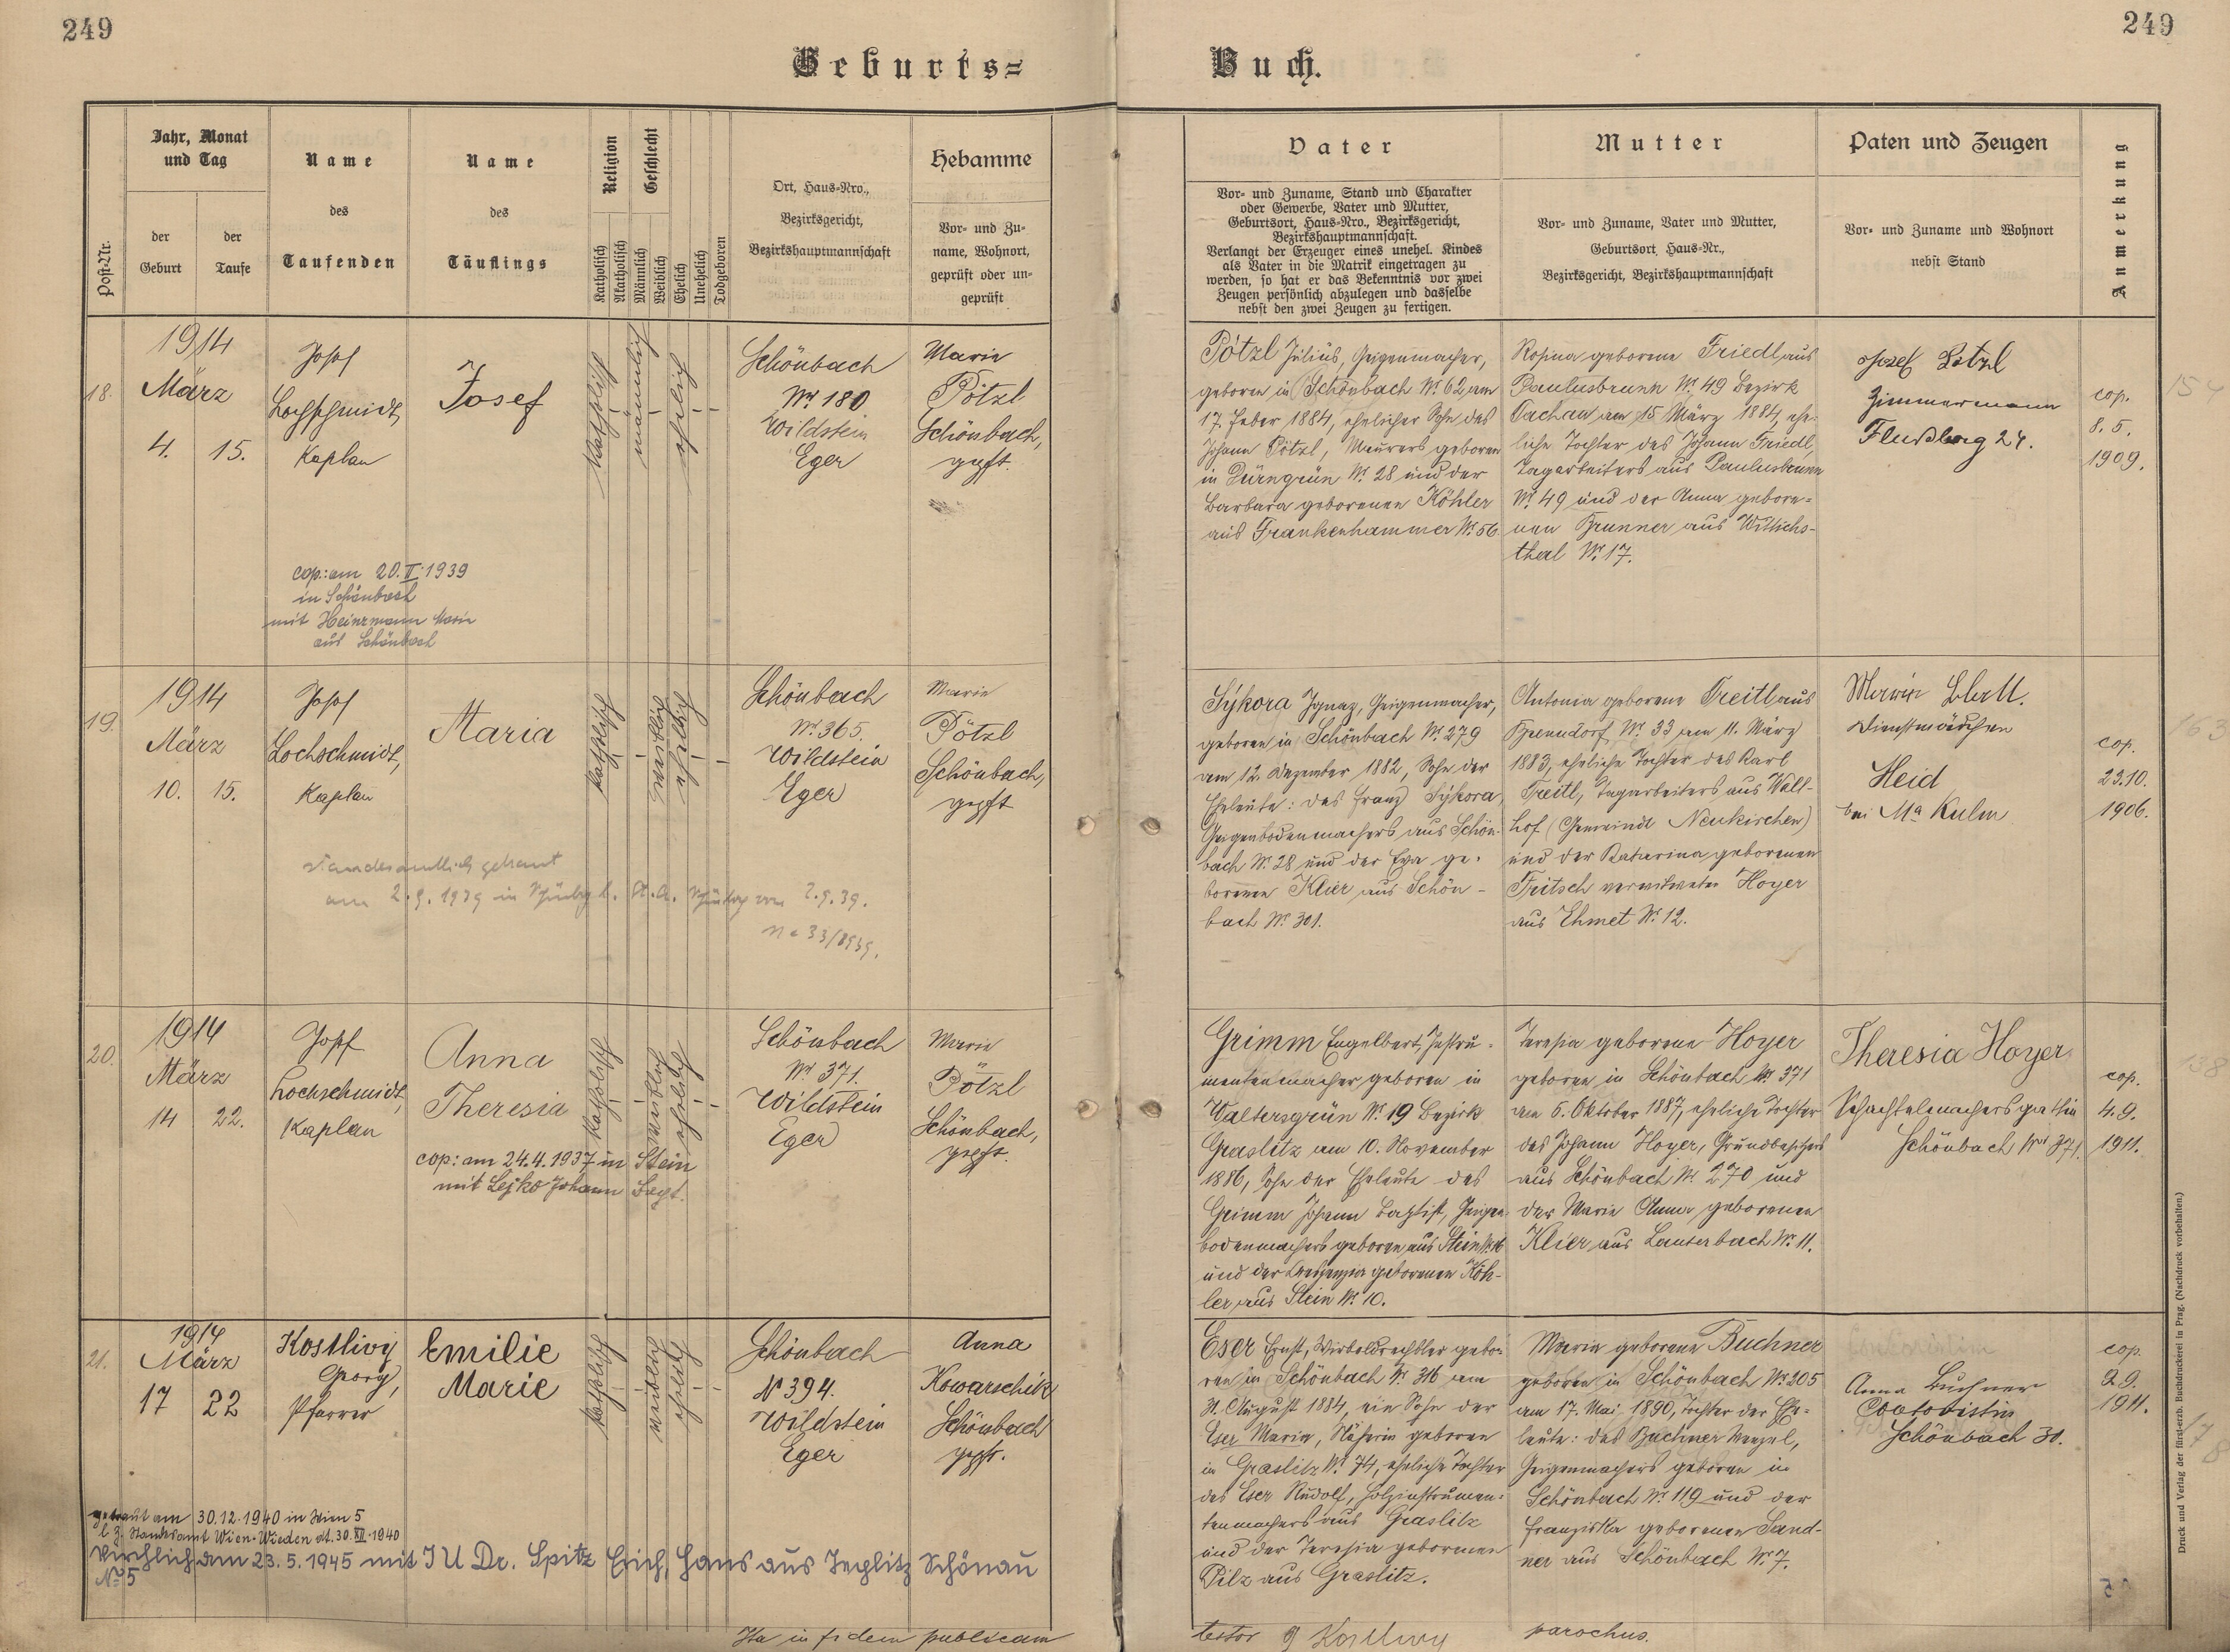 249
249
Geburts=
Buch.
Post-Nr.
Jahr, Monat
und Tag
der
Geburt
der
Taufe
Name
des
Taufenden
Name
des
Täuflings
Religion
Katholisch
Akatholisch
Geschlecht
Männlich
Weiblich
Ehelich
Unehelich
Todgeboren
Ort, Haus=Nro.,
Bezirksgericht,
Bezirkshauptmannschaft
Hebamme
Vor= und Zu=
name, Wohnort,
geprüft oder un=
geprüft
Vater
Vor= und Zuname, Stand und Charakter
oder Gewerbe, Vater und Mutter,
Geburtsort, Haus=Nro., Bezirksgericht,
Bezirkshauptmannschaft.
Verlangt der Erzeuger eines unehel. Kindes
als Vater in die Matrik eingetragen zu
werden, so hat er das Bekenntnis vor zwei
Zeugen persönlich abzulegen und dasselbe
nebst den zwei Zeugen zu fertigen.
Mutter
Vor= und Zuname, Vater und Mutter,
Geburtsort, Haus=Nr.,
Bezirksgericht, Bezirkshauptmannschaft
Paten und Zeugen
Vor= und Zuname und Wohnort
nebst Stand
Anmerkung
18.
1914
März
4. 15.
Josef
Lochschmidt,
Kaplan
Josef
katholisch
männlich
ehelich
Schönbach
Nr 180
Wildstein
Eger
Marie
Pötzl
Schönbach,
gepft.
cop.: am 20.V.1939
in Schönbach
mit Heinzmann Marie
aus Schönbach
Pötzl Julius, Geigenmacher,
geboren in Schönbach Nr. 62 am
17. Feber 1884, ehelicher Sohn des
Johann Pötzl, Maurers geboren
in Dürngrün Nr. 28 und der
Barbara geborenen Köhler
aus Frankenhammer Nr. 56.
Rosina geborene Friedl aus
Paulusbrunn Nr. 49 Bezirk
Tachau am 15. März 1884, ehe-
liche Tochter des Johann Friedl,
Tagarbeiters aus Paulusbrunn
Nr. 49 und der Anna gebore=
nen Brunner aus Wittichs-
thal Nr. 17.
Josef
Zimmermann
Flußberg 24.
cop.
8. 5.
1909.
154
19.
1914
März
10. 15.
Josef
Lochschmidt,
Kaplan
Maria
katholisch
weiblich
ehelich
Schönbach
Nr. 365.
Wildstein
Eger
Marie
Pötzl
Schönbach,
gepft
standesamtlich getraut
am 2.9.1939 in
2.9.39.
33/1939.
Sýkora Ignaz, Geigenmacher,
geboren in Schönbach Nr. 279
am 12. Dezember 1882, Sohn der
Eheleute: des Franz Sýkora,
Geigenbodenmachers aus Schön-
bach Nr. 28 und der Eva ge-
borenen Klier aus Schön-
bach Nr. 301.
Antonia geborene Treitl aus
Grendorf Nr. 33 am 11. März
1883, eheliche Tochter des Karl
Treitl, Tagarbeiters aus Wall-
hof (Gemeinde Neukirchen)
und der Katarina geborenen
Fritsch verwitwete Hoyer
aus Ehmet Nr. 12.
Maria
Dienstmädchen
Heid
bei Ma Kulm
cop.
23.10.
1906.
163
20.
1914
März
14 22.
Josef
Lochschmidt,
Kaplan
Anna
Theresia
katholisch
weiblich
ehelich
Schönbach
Nr 371.
Wildstein
Eger
Marie
Pötzl
Schönbach,
gepft.
cop: am 24.4.1937 in Stein
mit Lejko Johann
Grimm Engelbert, Instru-
mentenmacher geboren in
Waltersgrün Nr. 19 Bezirk
Graslitz am 10. November
1886, Sohn der Eheleute des
Grimm Johann Baptist, Geigen-
bodenmachers geboren aus Stein Nr. 16
und der Kreszenzia geborenen Köh-
ler aus Stein Nr. 10.
Teresia geborene Hoyer
geboren in Schönbach Nr 371
am 6. Oktober 1887, eheliche Tochter
des Johann Hoyer, Grundbesitzers
aus Schönbach Nr. 270 und
der Marie Anna geborenen
Klier aus Lauterbach Nr. 11.
Theresia Hoyer
Schachtelmachersgattin
Schönbach Nr 371.
cop.
4.9.
1911.
138
21.
1914
März
17 22
Kostlivy
Georg,
Pfarrer
Emilie
Marie
katholisch
weiblich
ehelich
Schönbach
N 394.
Wildstein
Eger
Anna
Kowarschik
Schönbach
gepft.
getraut am 30.12.1940 in Wien 5
l. Z. Standesamt Wien-Wieden dt. 30.XII.1940
Kirchlich am 23.5.1945 mit J U Dr. Spitz Erich, Hans aus Teplitz Schönau
No 5
Eser Ernst, Wirbeldrechsler gebo-
ren in Schönbach Nr. 316 am
31. August 1884, ein Sohn der
Eser Maria, Näherin geboren
in Graslitz Nr. 74, eheliche Tochter
des Eser Rudolf, Holzinstrumen-
tenmachers aus Graslitz
und der Teresia geborenen
Pilz aus Graslitz.
Maria geborene Buchner
geboren in Schönbach Nr. 205
am 17. Mai 1890, Tochter der Ehe-
leute: des Buchner Wenzel,
Geigenmachers geboren in
Schönbach Nr. 119 und der
Franziska geborenen Sand-
ner aus Schönbach Nr. 7.
Anna Buchner
Schönbach 31.
cop.
2.9.
1911.
178
Ita in fidem publicam
testor G Kostlivy parochus.
Druck und Verlag der fürst-erzb. Buchdruckerei in Prag. (Nachdruck vorbehalten.)